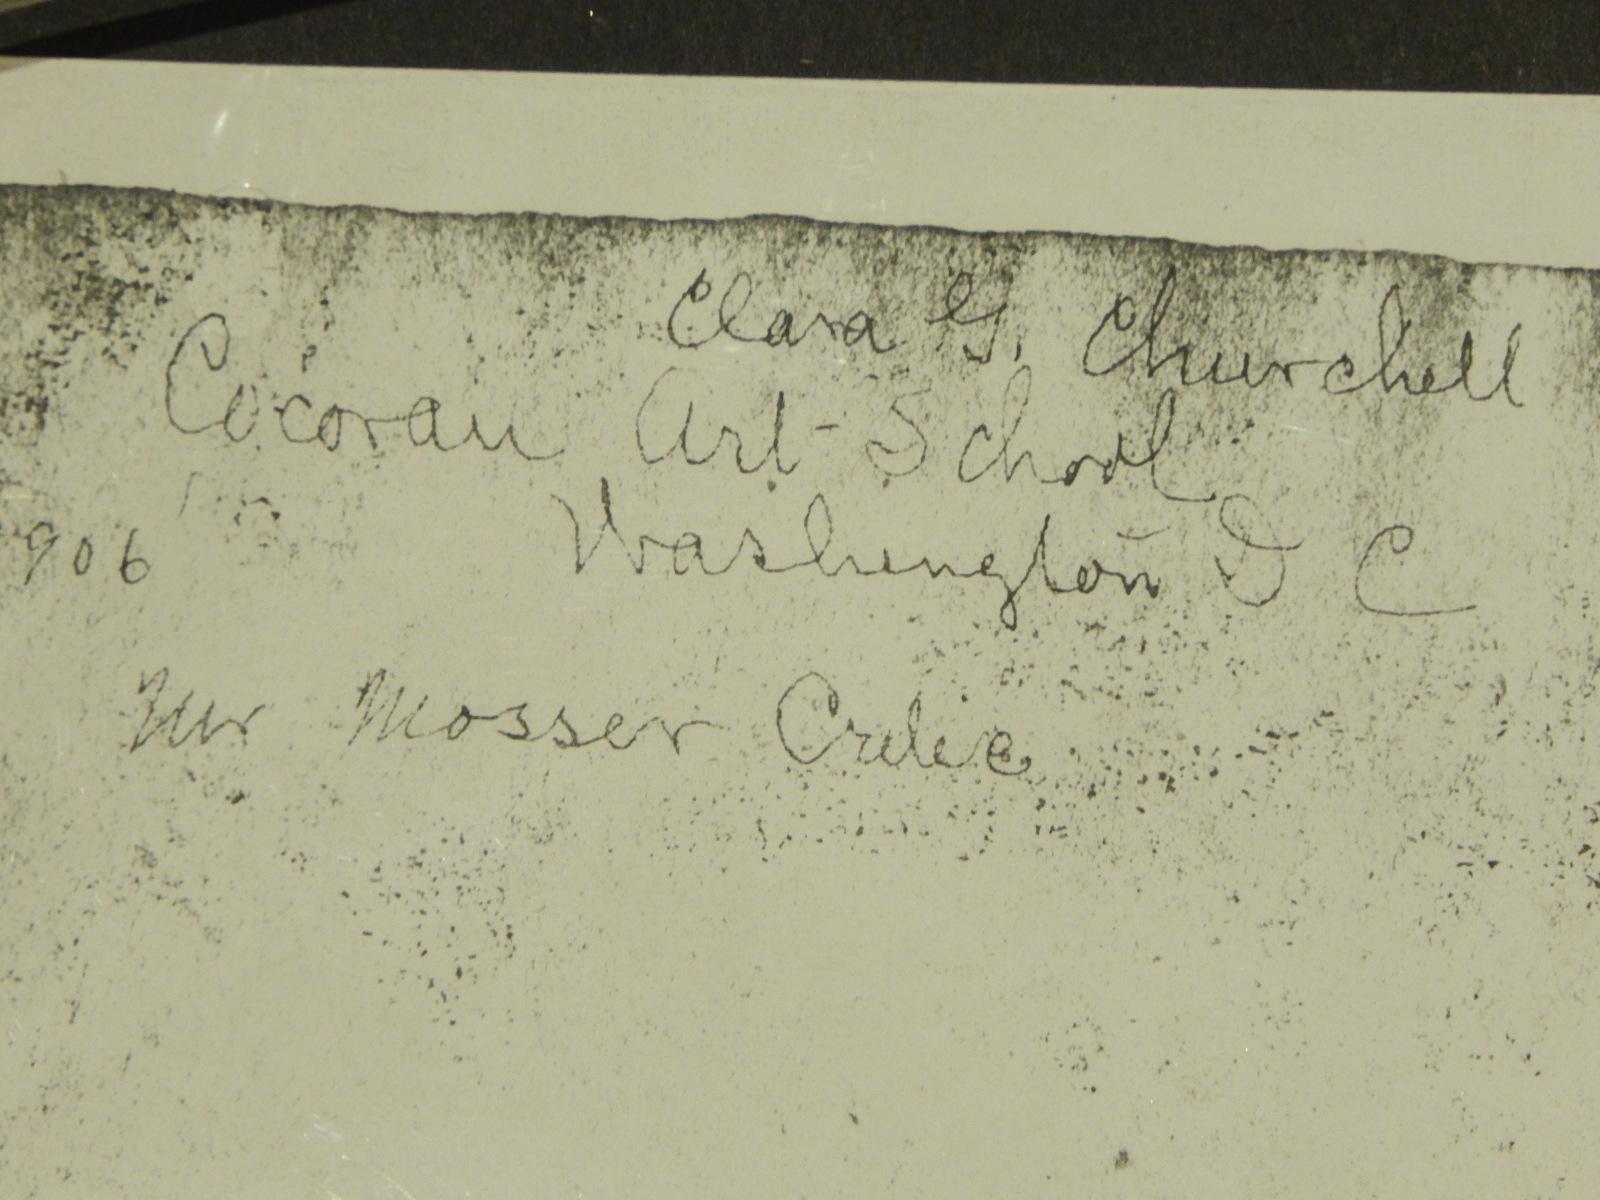 Clara G. Churchell
Cocoran Art School
906 Washington D C
Mr Mosser Critic